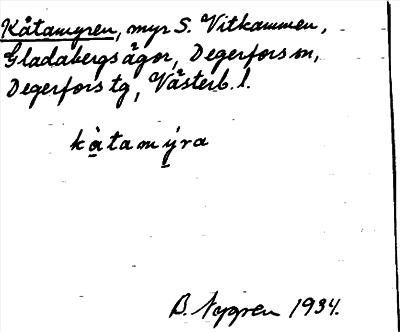 Kåtamyren, myr S. Vitkammen,
Gladabergs ägor, Degerfors sn,
Degerfors tg, Västerb. l.
kå̀tamýra
B. Nygren 1934.